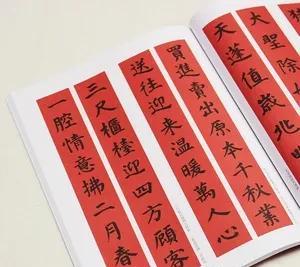 大聖除
天蓬值歲
買進賣出原本千秋業
送往迎来温暖萬人心
三尺櫃檯迎四方顧客
一腔情意拂二月春